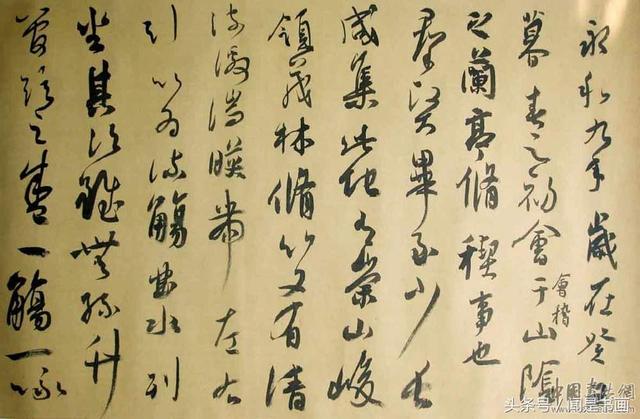 永和九年歲在癸
暮春之初會于山陰
會稽
之蘭亭脩稧事也
群賢畢至少長
咸集此地有崇山峻
領茂林脩竹又有清
流激湍暎帶左右
引以為流觴曲水列
坐其次雖無絲竹
管絃之盛一觴一詠
头条号/闻是书画